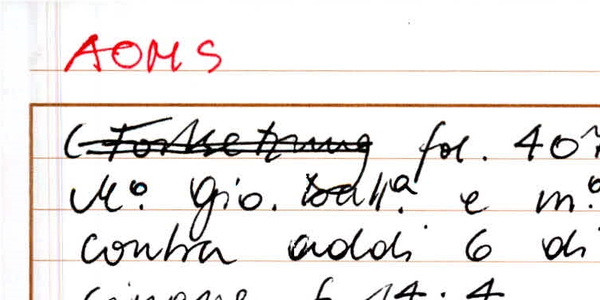 AOMS
(Fortsetzung fol. 40
Mº. Gio. Batt.ª e m.º
contra addi 6 di